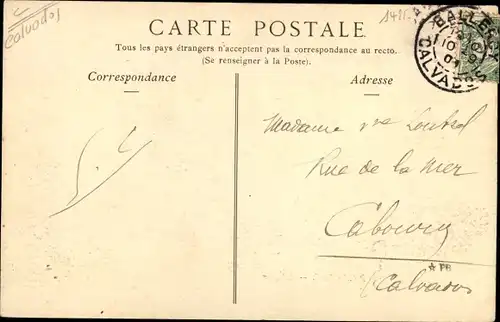 Calvados
1411.
CARTE POSTALE
Tous les pays étrangers n'acceptent pas la correspondance au recto.
(Se renseigner à la Poste).
Correspondance
Adresse
CALVADOS
Madame Vve
Rue de la Mer
Cabourg
★ FB
Calvados